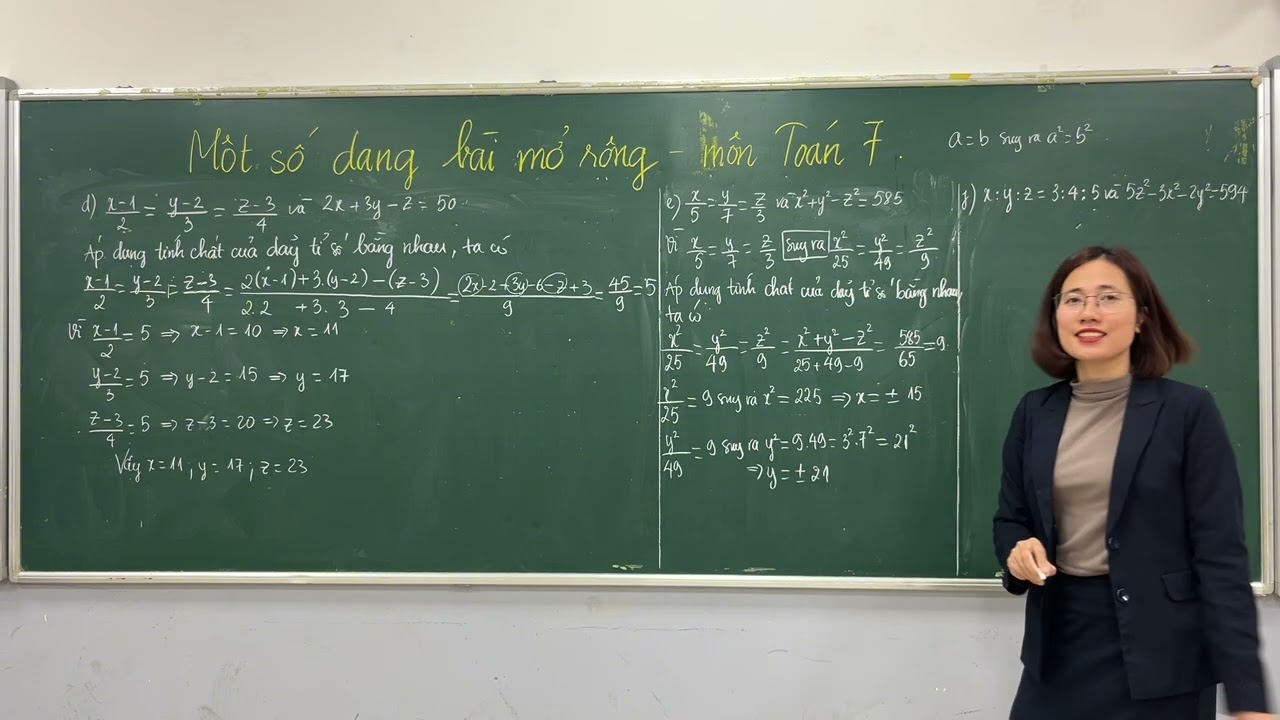 Một số dạng bài mở rộng – môn Toán 7.
d) x-1/2 = y-2/3 = z-3/4 và 2x+3y-z=50
Áp dụng tính chất của dãy tỉ số bằng nhau, ta có
x-1/2 = y-2/3 = z-3/4 = 2(x-1)+3.(y-2)-(z-3)/2.2+3.3-4 = 2x-2+3y-6-z+3/9 = 45/9 = 5
Vì x-1/2 = 5 ⇒ x-1=10 ⇒ x=11
y-2/3 = 5 ⇒ y-2=15 ⇒ y=17
z-3/4 = 5 ⇒ z-3=20 ⇒ z=23
Vậy x=11; y=17; z=23
e) x/5 = y/7 = z/3 và x²+y²-z²=585
Vì x/5 = y/7 = z/3 suy ra x²/25 = y²/49 = z²/9
Áp dụng tính chất của dãy tỉ số bằng nhau,
ta có
x²/25 = y²/49 = z²/9 = x²+y²-z²/25+49-9 = 585/65 = 9
x²/25 = 9 suy ra x² = 225 ⇒ x = ± 15
y²/49 = 9 suy ra y² = 9.49 = 3².7² = 21²
⇒ y = ± 21
a=b suy ra a²=b²
f) x:y:z = 3:4:5 và 5z²-3x²-2y²=594